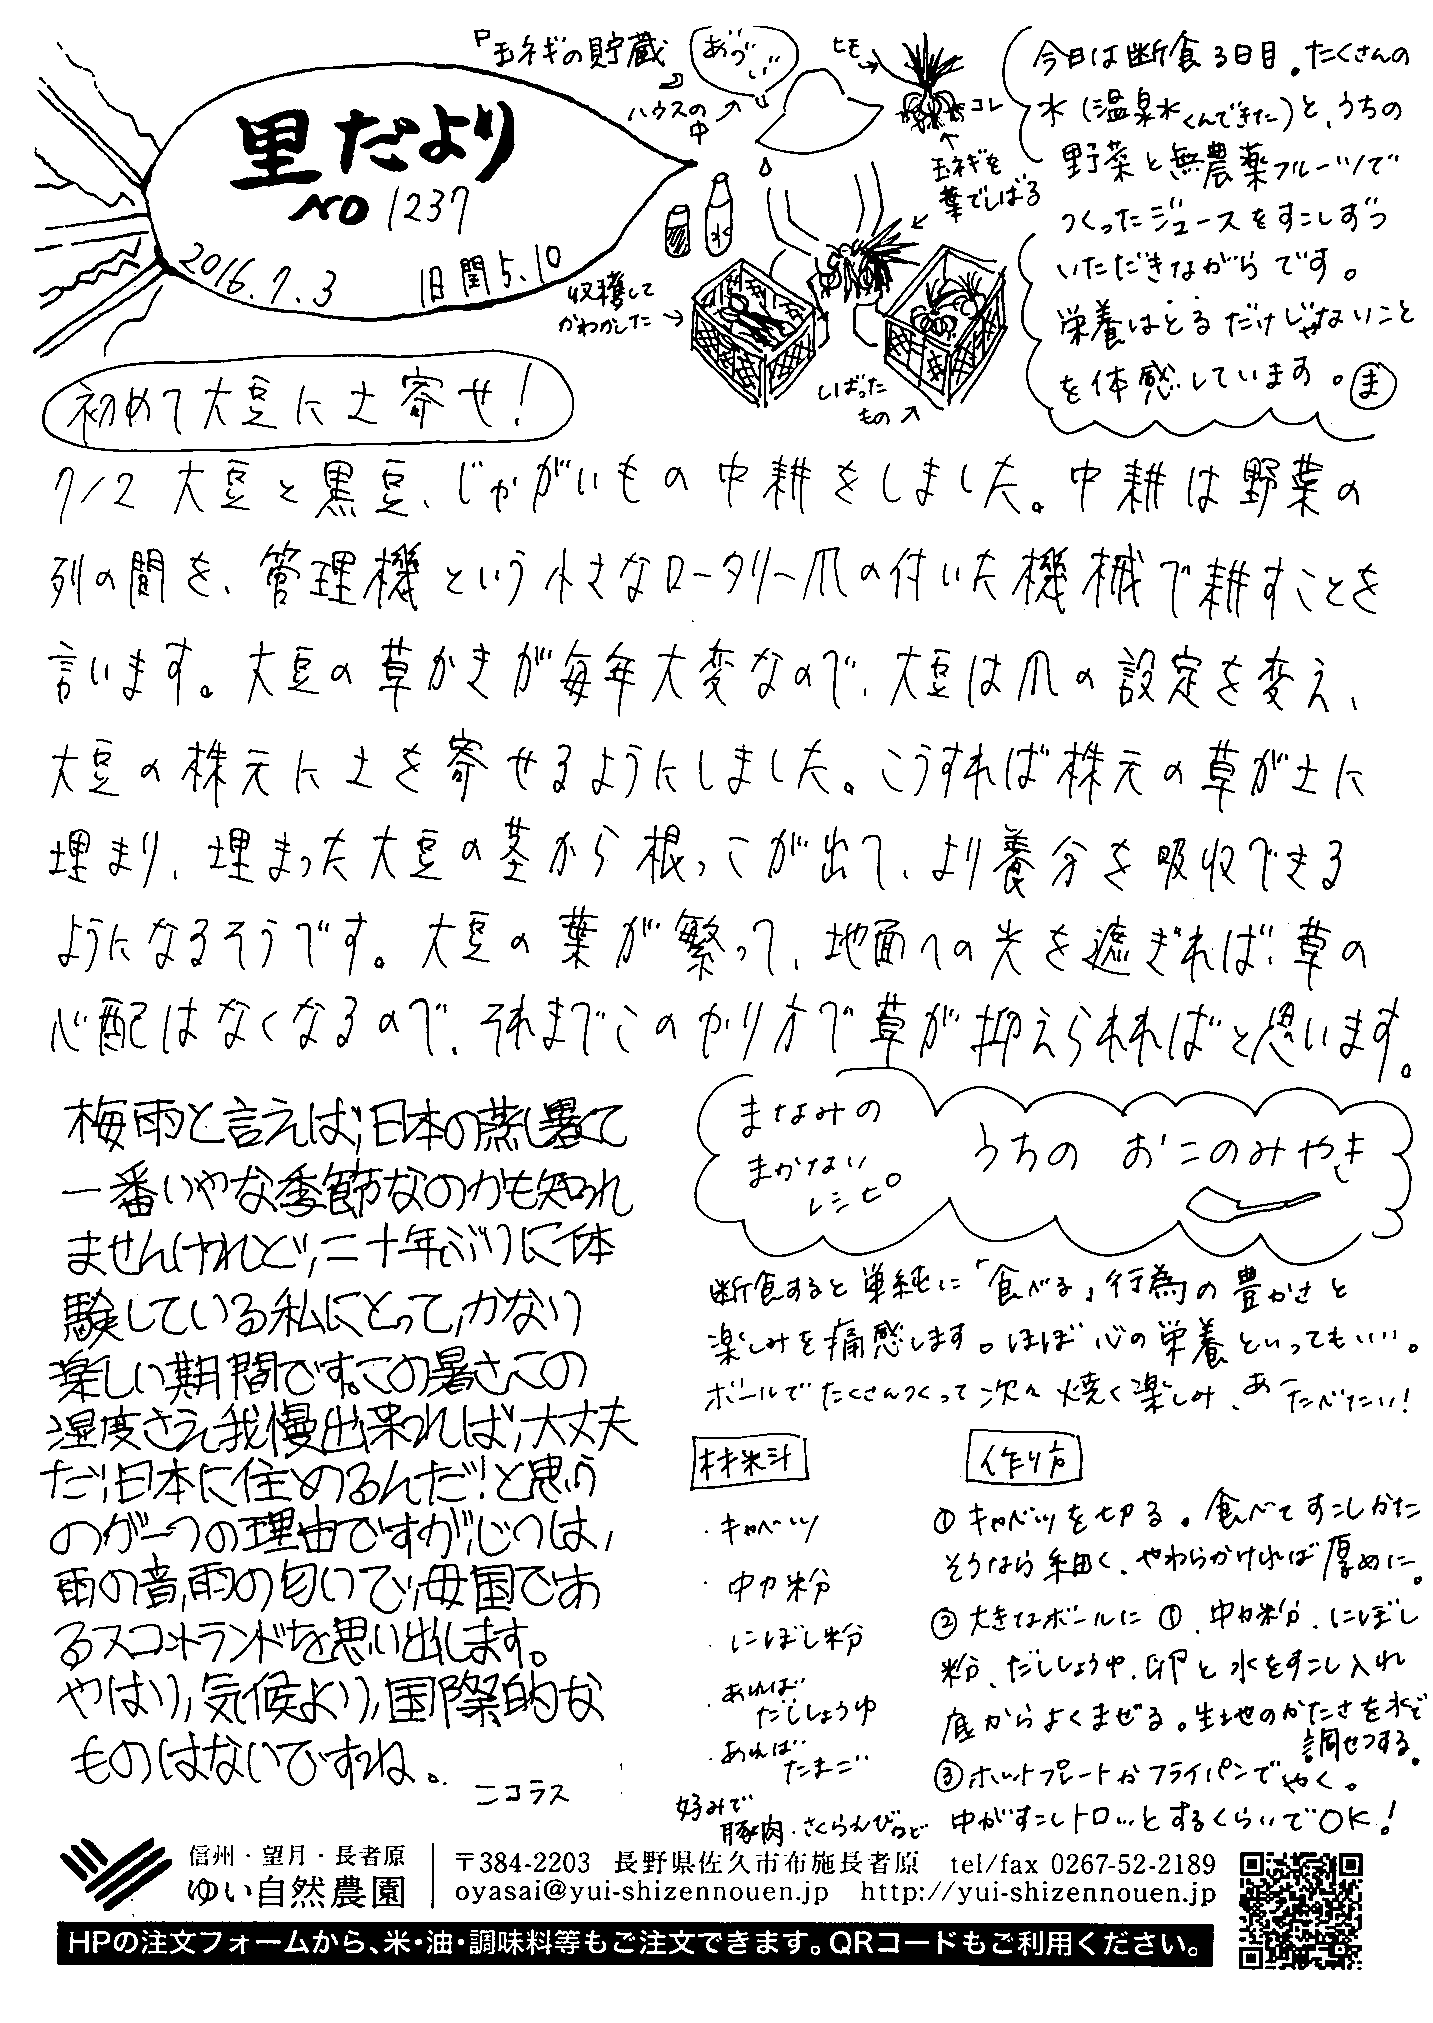 里だより
NO 1237
2016.7.3 旧閏5.10
『玉ネギの貯蔵
あづい
ハウスの
中
ヒモ
コレ
玉ネギを
葉でしばる
水
収穫して
かわかした
しばった
もの
今日は断食3日目。たくさんの
水(温泉水くんできた)と、うちの
野菜と無農薬フルーツで
つくったジュースをすこしずつ
いただきながらです。
栄養はとるだけじゃないこと
を体感しています。ま
初めて大豆に土寄せ!
7/2 大豆と黒豆、じゃがいもの中耕をしました。中耕は野菜の
列の間を、管理機という小さなロータリー爪の付いた機械で耕すことを
言います。大豆の草かきが毎年大変なので、大豆は爪の設定を変え、
大豆の株元に土を寄せるようにしました。こうすれば株元の草が土に
埋まり、埋まった大豆の茎から根っこが出て、より養分を吸収できる
ようになるそうです。大豆の葉が繁って、地面への光を遮ぎれば、草の
心配はなくなるので、それまでこのやり方で草が抑えられればと思います。
梅雨と言えば、日本の蒸し暑くて
一番いやな季節なのかも知れ
ませんけれど、二十年ぶりに体
験している私にとって、かなり
楽しい期間です。この暑さこの
湿度さえ我慢出来れば、大丈夫
だ!日本に住めるんだ!と思う
のが一つの理由ですが、じつは、
雨の音、雨の匂いで、母国であ
るスコットランドを思い出します。
やはり、気候より、国際的な
ものはないですね。
ニコラス
まなみの
まかない
レシピ。
うちの おこのみやき
断食すると単純に「食べる」行為の豊かさと
楽しみを痛感します。ほぼ心の栄養といってもいい。
ボールでたくさんつくって次々焼く楽しみ、あーたべたい!
材料
・キャベツ
・中力粉
・にぼし粉
・あれば
だししょうゆ
・あれば
たまご
好みで
豚肉・さくらえびなど
作り方
①キャベツを切る。食べてすこしかた
そうなら細く、やわらかければ厚めに。
②大きなボールに①、中力粉、にぼし
粉、だししょうゆ、卵と水をすこし入れ
底からよくまぜる。生地のかたさを水で
調せつする。
③ホットプレートかフライパンでやく。
中がすこしトロッとするくらいでOK!
信州・望月・長者原
ゆい自然農園
〒384-2203 長野県佐久市布施長者原 tel/fax 0267-52-2189
oyasai@yui-shizennouen.jp http://yui-shizennouen.jp
HPの注文フォームから、米・油・調味料等もご注文できます。QRコードもご利用ください。